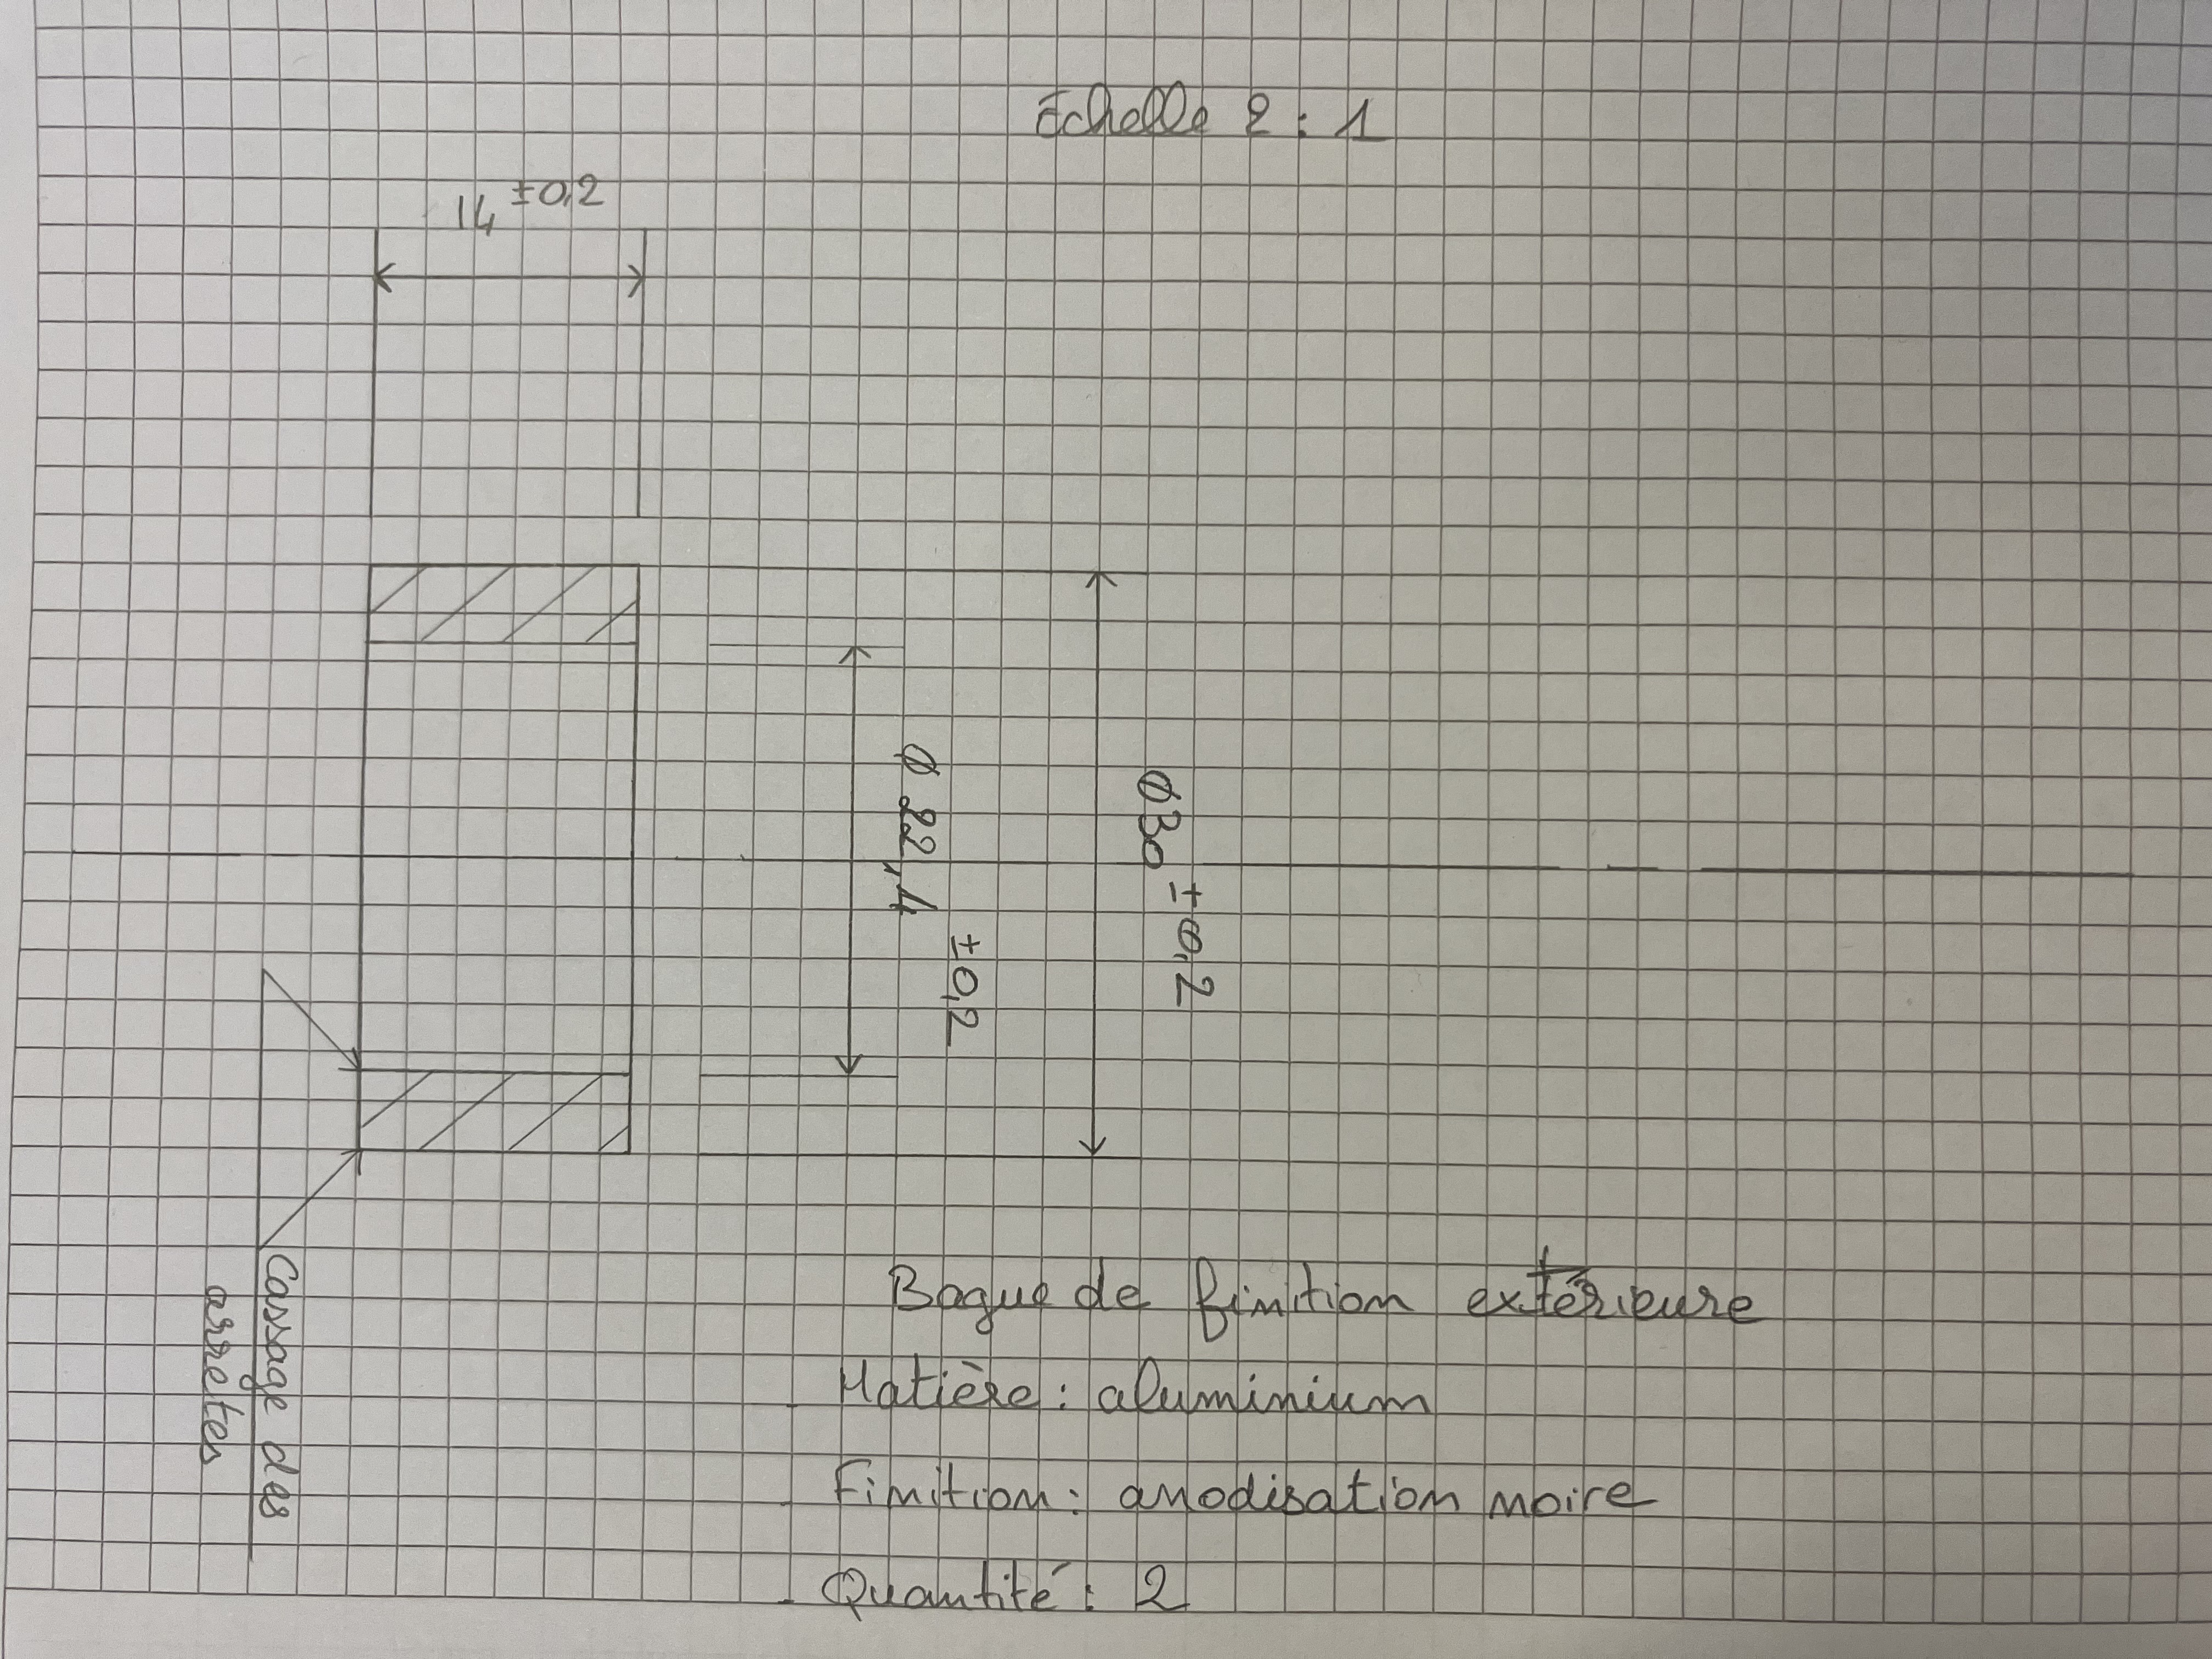 Echelle 2 : 1
14 ±0,2
Ø 22,4 ±0,2
Ø30 ±0,2
Cassage des
arretes
Bague de finition extérieure
- Matière : aluminium
- Finition : anodisation noire
- Quantité : 2